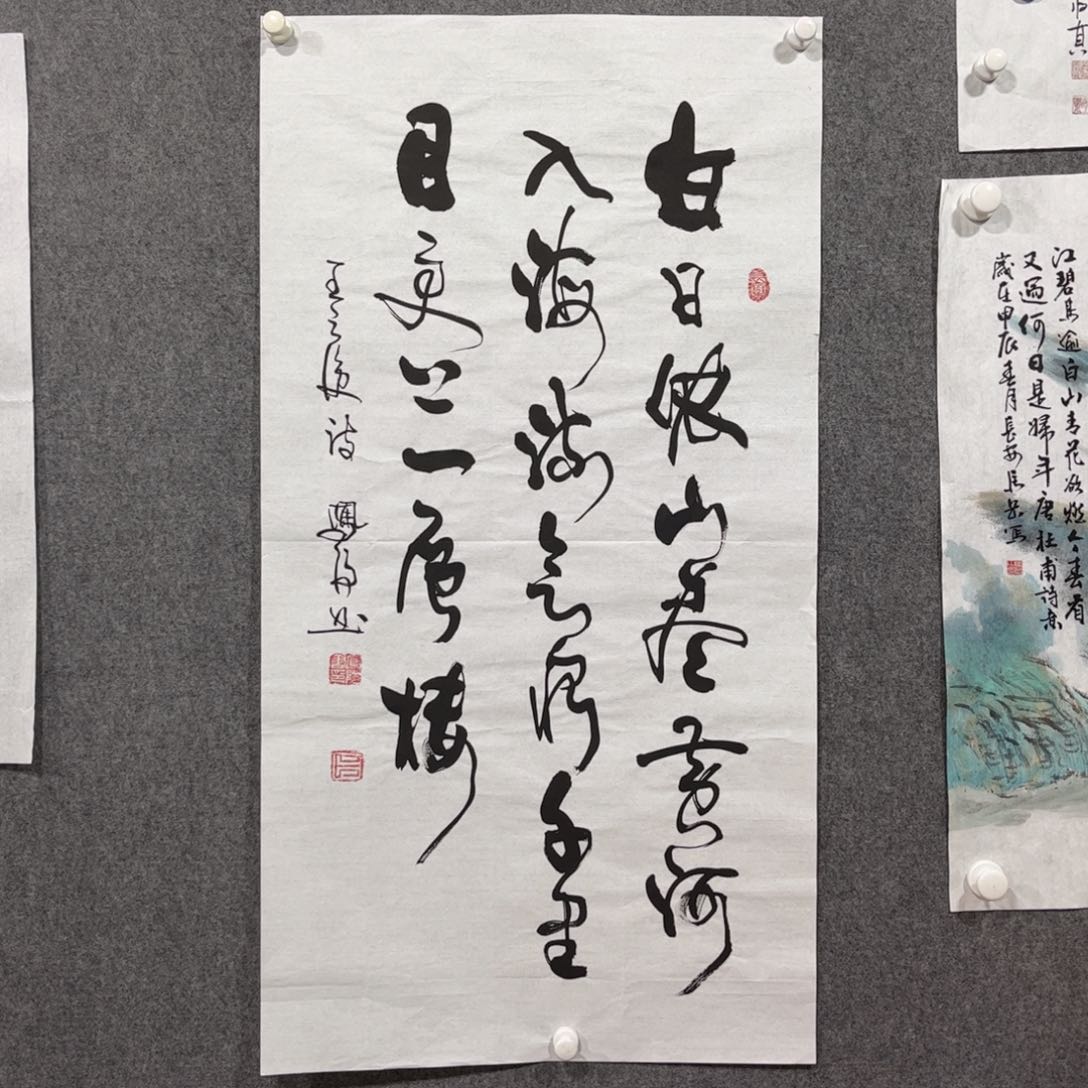 白日依山尽黄河
入海流欲穷千里
目更上一层楼
王之涣诗
江碧鳥逾白山青花欲燃今春看
又過何日是歸年唐杜甫詩意
歲在甲辰春月長安